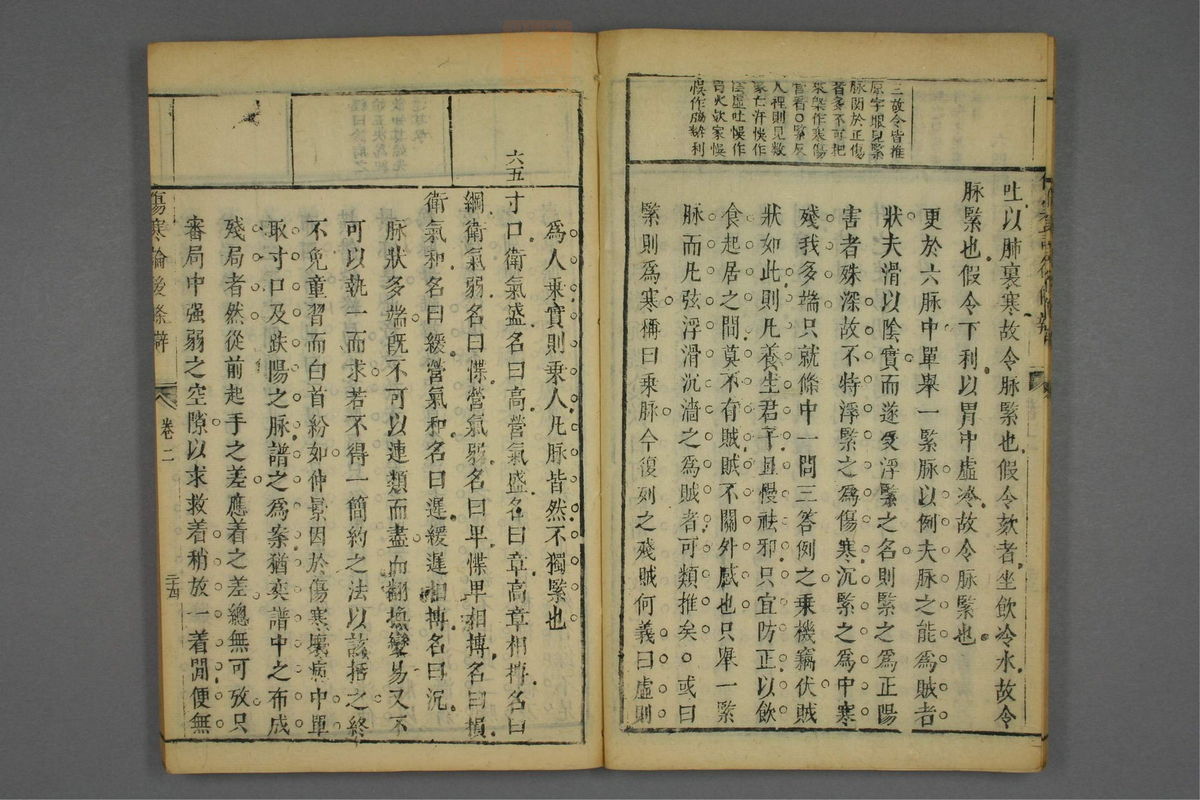 三故令皆推
原字眼見緊
脉関於正傷
者多不可把
來槩作寒傷
官看○緊反
入裡則見数
家亡汗悞作
陰虛吐悞作
胃火欬家悞
悞作腸澼利
吐以肺裏寒故令脉緊也假令欬者坐飲冷水故令
脉緊也假令下利以胃中虛冷故令脉緊也
更於六脉中單舉一緊脉以例夫脉之能爲賊者
狀夫滑以陰實而遂受浮緊之名則緊之爲正陽
害者殊深故不特浮緊之爲傷寒沉緊之爲中寒
殘我多端只就條中一問三答例之乗機竊伏賊
狀如此則凡養生君子且慢祛邪只宜防正以飲
食起居之間莫不有賊賊不關外感也只舉一緊
脉而凡弦浮滑沉濇之爲賊者可類推矣○或曰
緊則爲寒搙曰乗脉今復列之殘賊何義曰虛則
爲人乗實則乗人凡脉皆然不獨緊也
六五
寸口衛氣盛名曰高營氣盛名曰章高章相摶名曰
綱衛氣弱名曰惵營氣弱名曰卑惵卑相摶名曰損
衛氣和名曰緩營氣和名曰遲緩遲相摶名曰沉
脉狀多端旣不可以連類而盡而翻換變易又不
可以執一而求若不得一簡約之法以該括之終
不免童習而白首紛如仲景因於傷寒壞病中單
取寸口及趺陽之脉譜之爲案猶奕譜中之布成
殘局者然從前起手之差應着之差總無可攷只
審局中强弱之空隙以求救着稍放一着閒便無
傷寒論後條辯
卷二
二十四